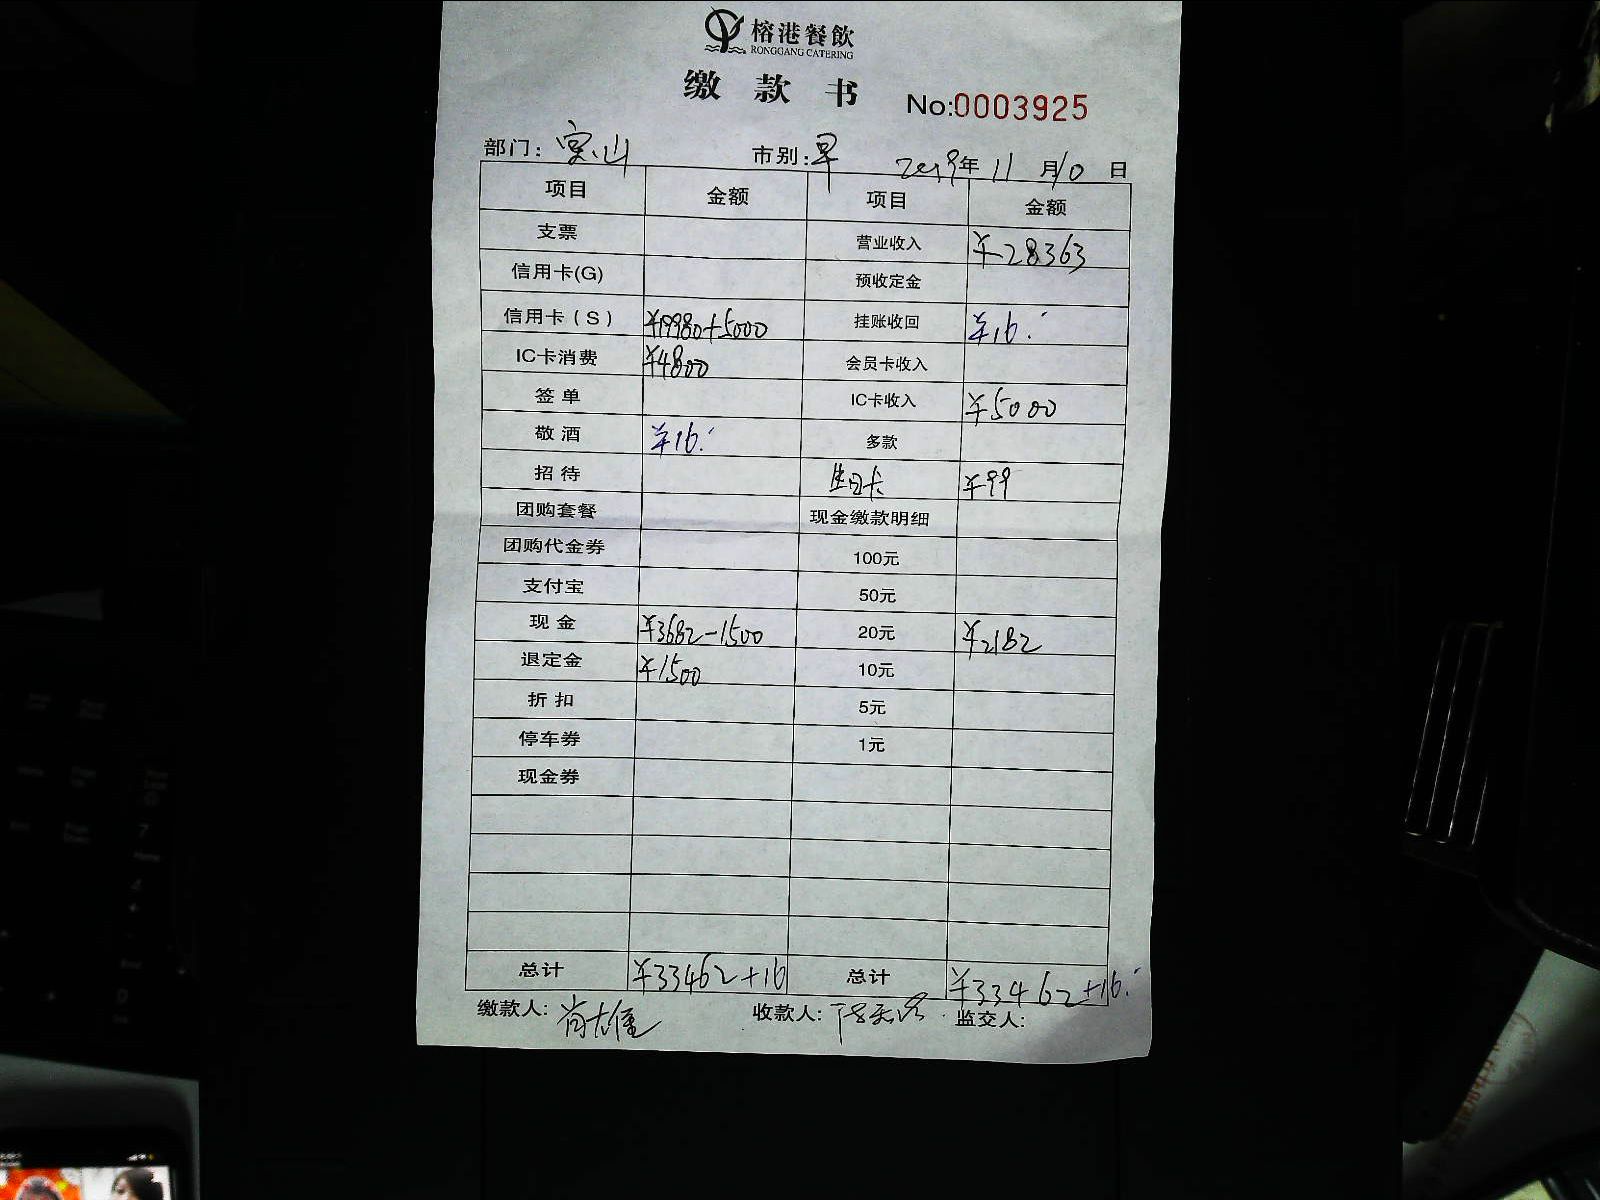 榕港餐飲
RONGGANG CATERING
缴款书 No:0003925
部门: 宝山 市别: 早 2019年11月10日
项目 金额 项目 金额
支票 营业收入 ¥28363
信用卡(G) 预收定金
信用卡(S) ¥19980+5000 挂账收回 ¥16.
IC卡消费 ¥4800 会员卡收入
签单 IC卡收入 ¥5000
敬酒 ¥16. 多款
招待 生日卡 ¥99
团购套餐 现金缴款明细
团购代金券 100元
支付宝 50元
现金 ¥3682-1500 20元 ¥2182
退定金 ¥1500 10元
折扣 5元
停车券 1元
现金券
总计 ¥33462+16 总计 ¥33462+16.
缴款人: 肖雄 收款人: 监交人: